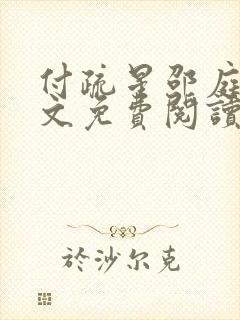 付疏星邵庭
文免費閱讀
於沙尔克